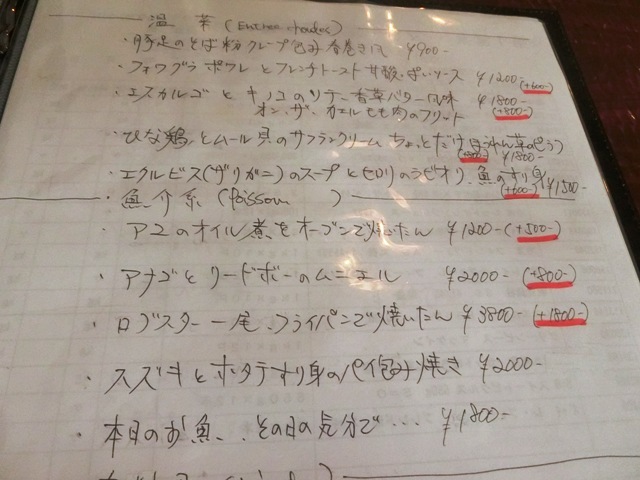 温菜 (Entrées chaudes)
・豚足のそば粉クレープ包み 春巻き風 ¥900-
・フォワグラポワレとフレンチトースト 甘酸っぱいソース ¥1200- (+600-)
・エスカルゴとキノコのソテー 香草バター風味 ¥1800- (+800-)
オン・ザ・カエルもも肉のフリット
・ひな鶏とムール貝のサフランクリーム ちょっとだけ ほうれん草 ¥1800-
・エクルビス(ザリガニ)のスープとセロリのラビオリ、魚のすり身 (+600-) ¥1500
・魚介系 (Poisson )
・アユのオイル煮をオーブンで焼いたん ¥1200- (+500-)
・アナゴとリードボーのムニエル ¥2000- (+800-)
・ロブスター一尾、フライパンで焼いたん ¥3800- (+1800-)
・スズキとホタテすり身のパイ包み焼き ¥2000-
・本日のお魚、その日の気分で… ¥1800-